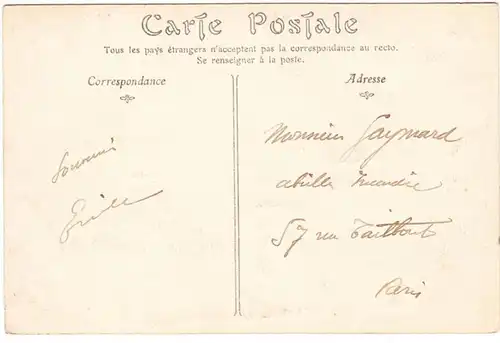 Carte Postale
Tous les pays étrangers n'acceptent pas la correspondance au recto.
Se renseigner à la poste.
Correspondance
Adresse
Souvenir
Monsieur Gaymard
abeille Incendie
57 rue Taitbout
Paris